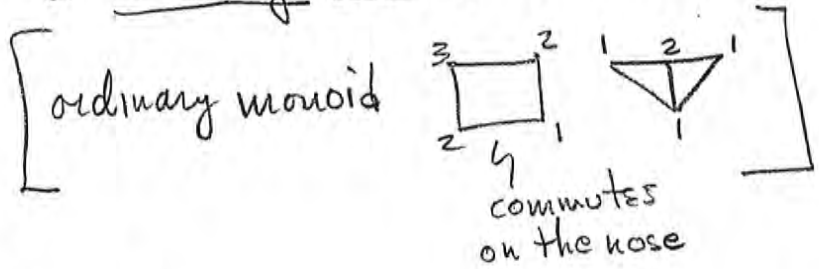 ordinary monoid
3 2 1 2 1
2 1 1
commutes
on the nose